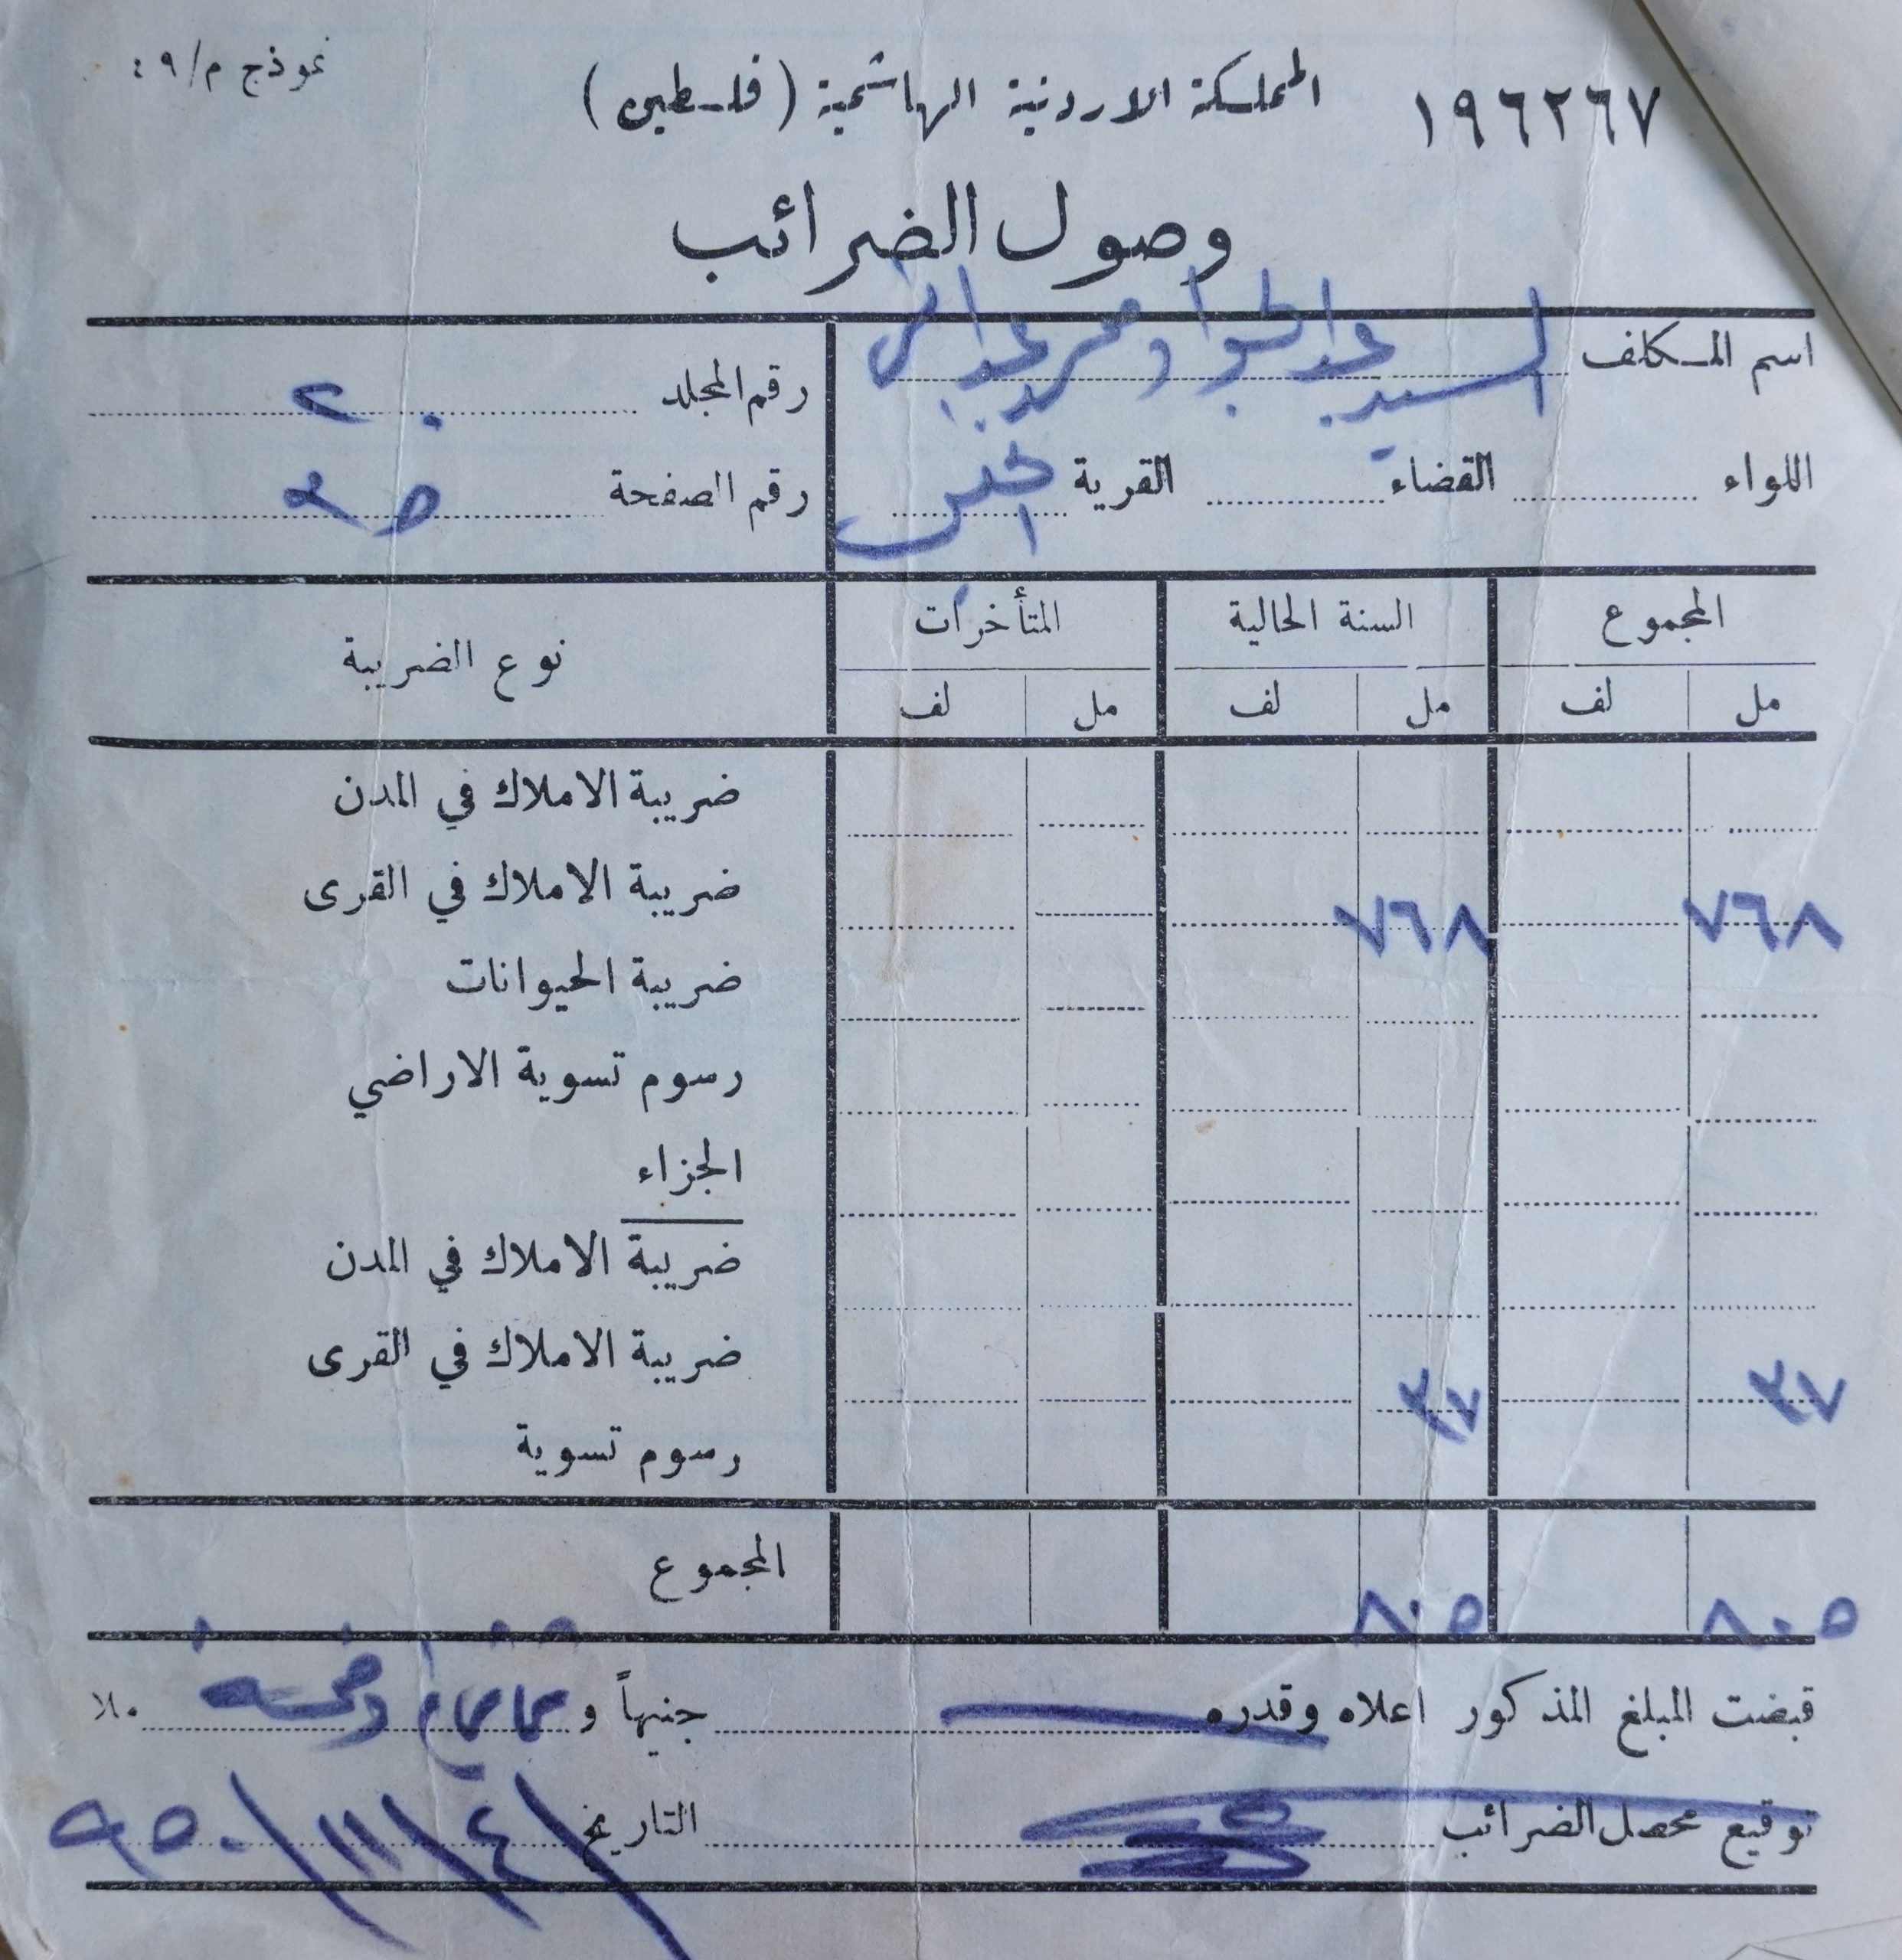 ١٩٦٢٦٧ المملكة الاردنية الهاشمية (فلسطين) نموذج م/٤٩
وصول الضرائب
اسم المكلف السيد عبد الجواد ومحمد عبد
رقم المجلد ٢٠
اللواء القضاء القرية
رقم الصفحة ٢٥
المجموع السنة الحالية المتأخرات نوع الضريبة
مل لف مل لف مل لف
ضريبة الاملاك في المدن
٧٦٨ ٧٦٨ ضريبة الاملاك في القرى
ضريبة الحيوانات
رسوم تسوية الاراضي
الجزاء
ضريبة الاملاك في المدن
٣٧ ٣٧ ضريبة الاملاك في القرى
رسوم تسوية
٨٠٥ ٨٠٥ المجموع
قبضت المبلغ المذكور اعلاه وقدره جنيهاً و ثمانماية وخمسة ملا
توقيع محصل الضرائب التاريخ ٤/١١/٩٥٠